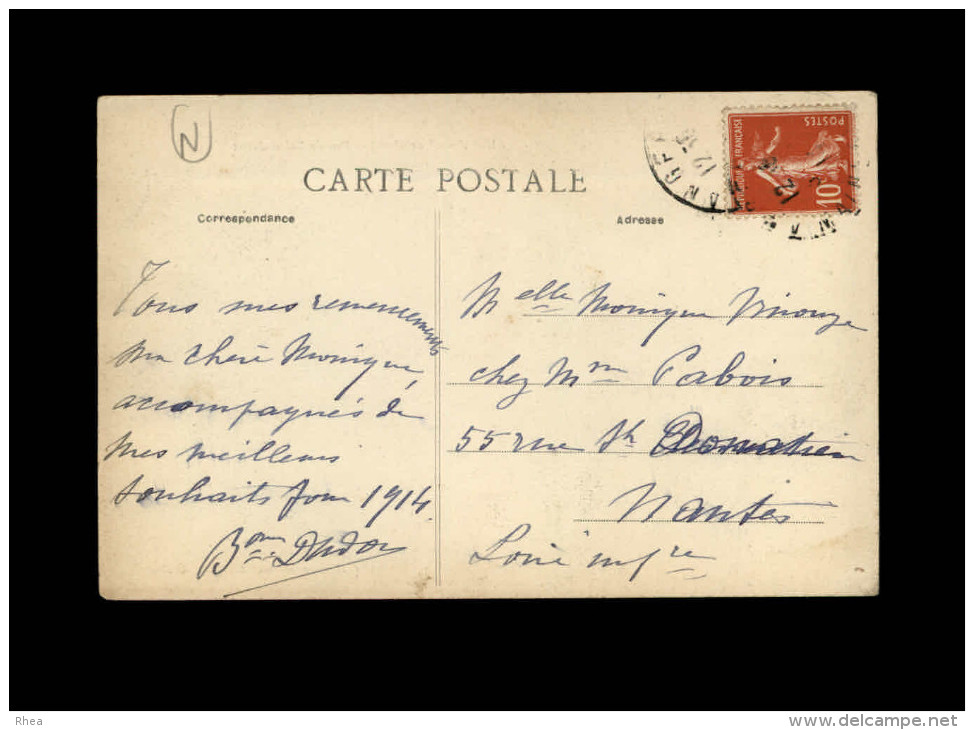 N
CARTE POSTALE
Correspondance
Adresse
POSTES
10
Tous mes remerciements
ma chère Monique,
accompagnés de
mes meilleurs
souhaits pour 1914.
Bonne
Melle Monique
chez Mme Cabois
55 rue St Donatien
Nantes
Loire Infre
Rhea
www.delcampe.net